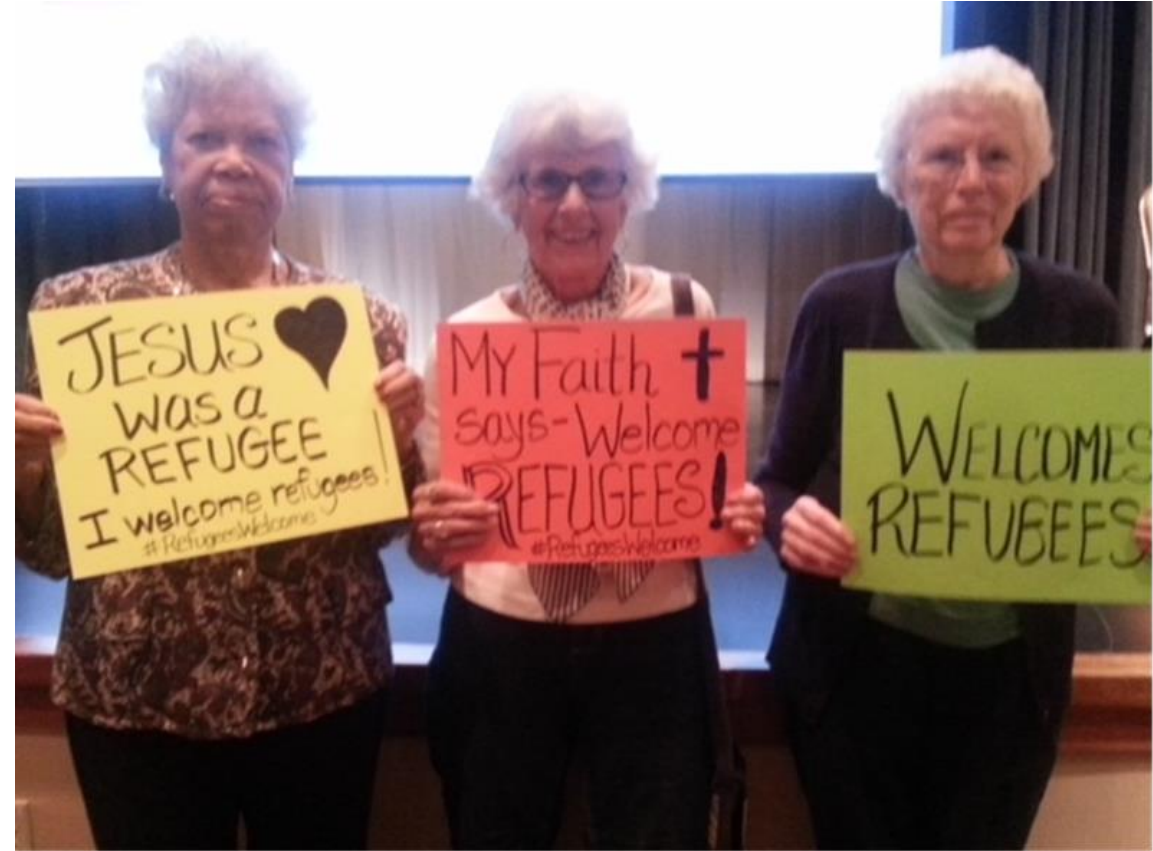 JESUS
was a
REFUGEE
I welcome refugees!
#RefugeesWelcome
MY Faith
says-Welcome
REFUGEES!
#RefugeesWelcome
WELCOMES
REFUGEES